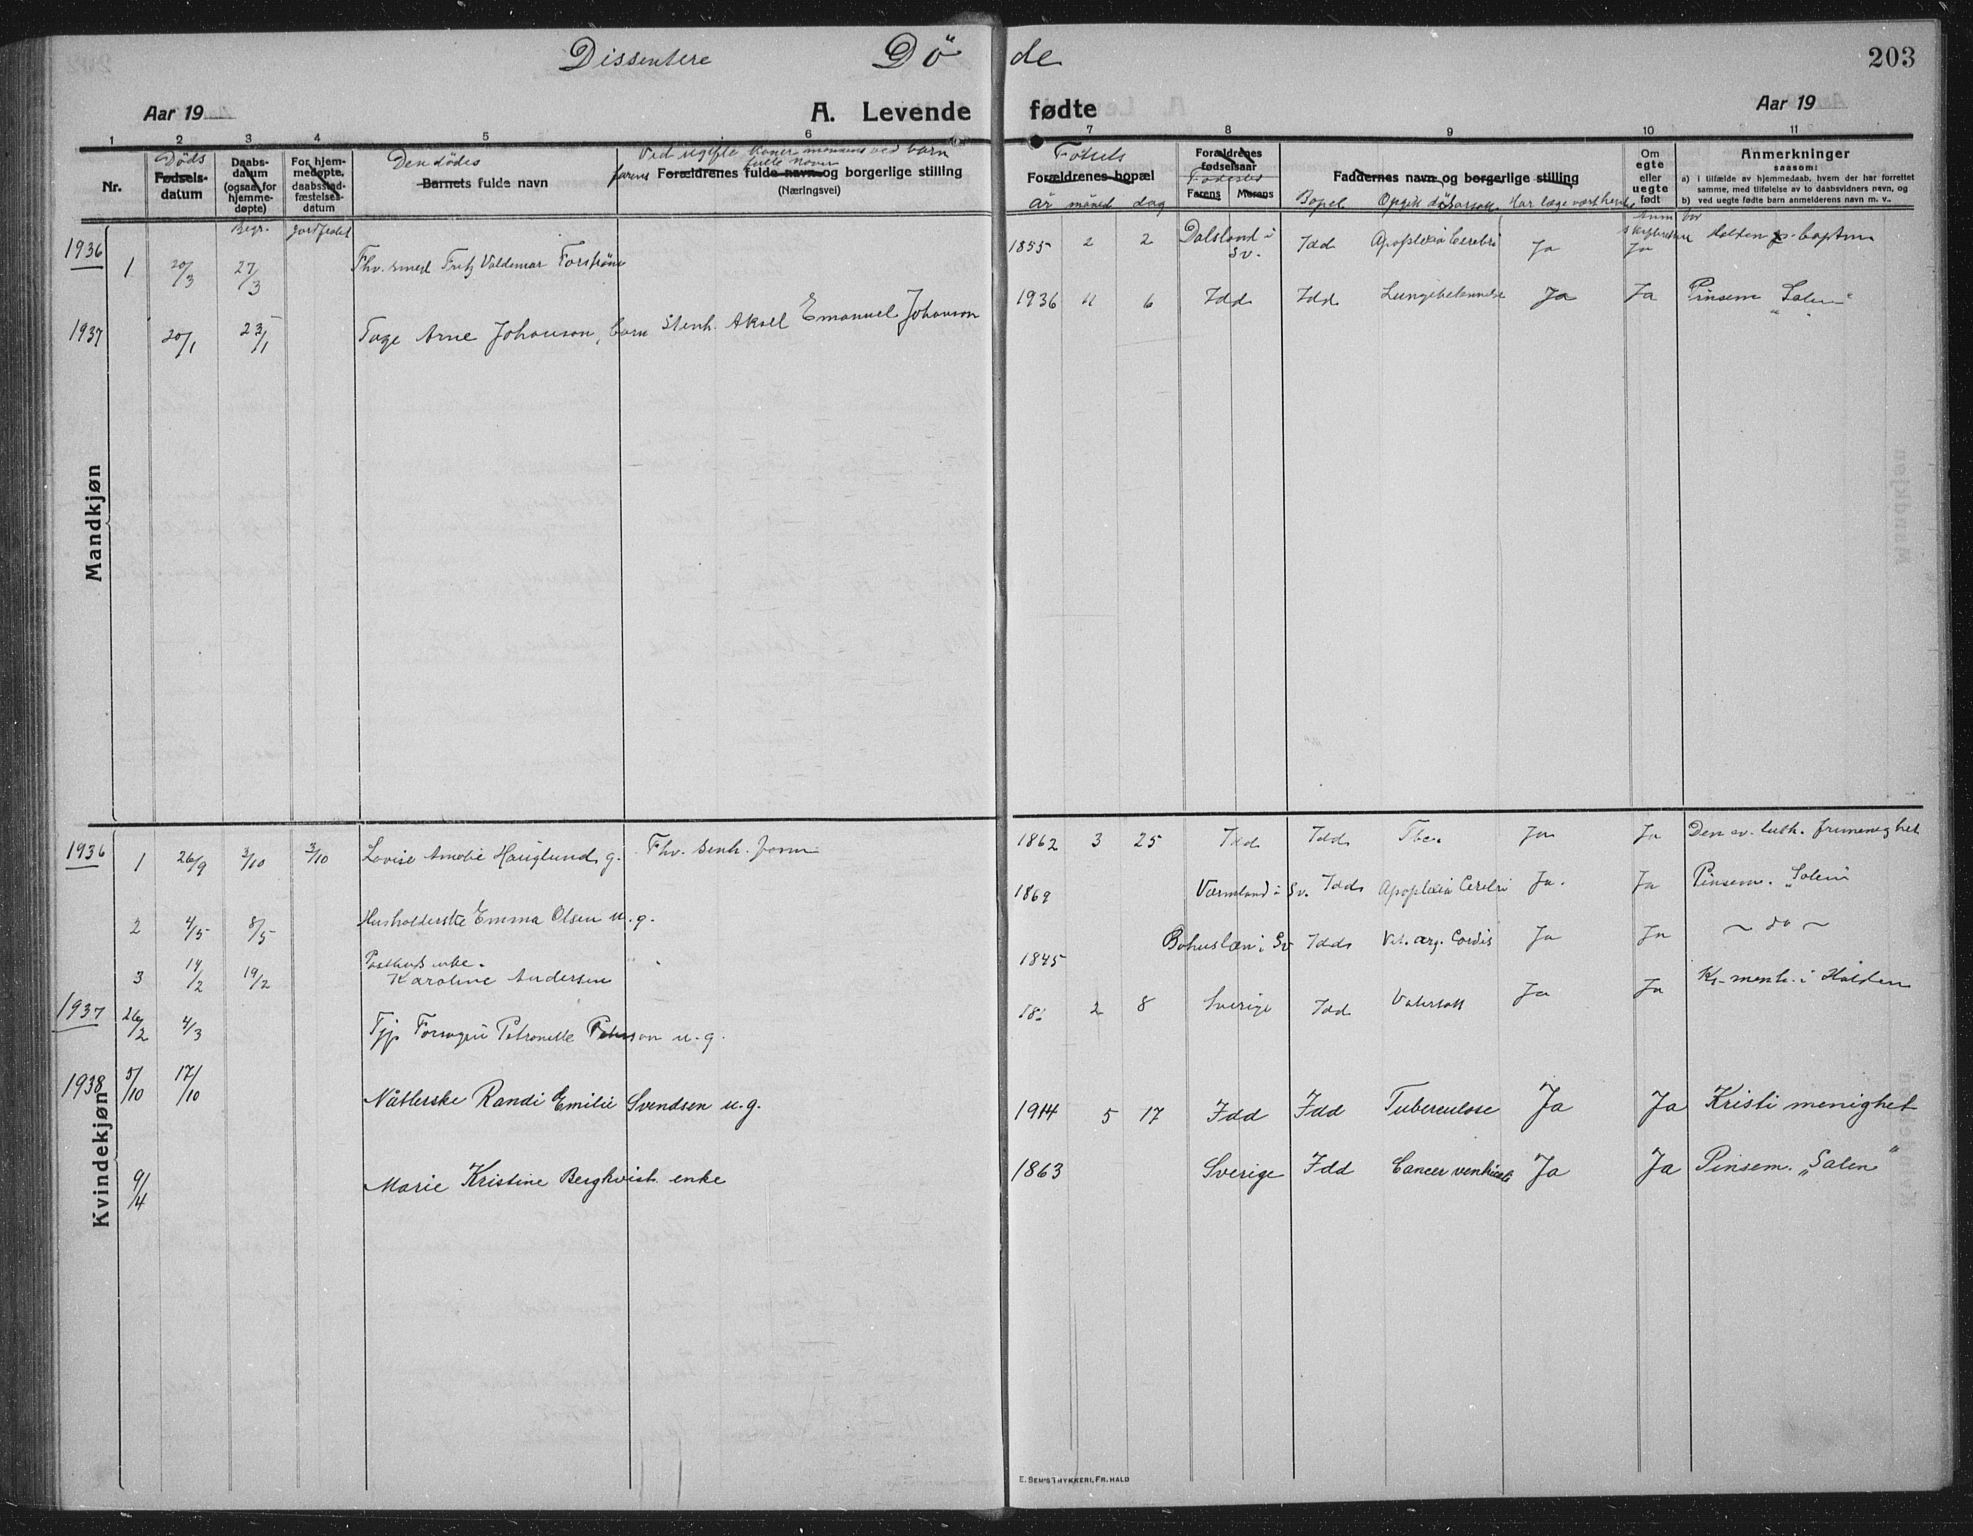 Dissentere Dö de 203
Aar 19 A. Levende fødte Aar 19
1 2 3 4 5 6 7 8 9 10 11
Nr.
Døds
Fødsels-
datum
Daabs-
datum
(ogsaa for
hjemme-
døpte)
Begr.
For hjem-
medøpte,
daabsstad-
fæstelses-
datum
Jordfestet
Den dödes
Barnets fulde navn
Ved ugifte Koner mannens ved barn
farens fulle navn
Forældrenes fulde navn og borgerlige stilling
(Næringsvei)
Fötsels
Forældrenes bopæl
år måned dag
Forældrenes
fødselsaar
Fødested
Farens Morens
Faddernes navn og borgerlige stilling
Bopel
Om
egte
eller
uegte
født
Anmerkninger
saasom:
a) i tilfælde av hjemmedaab, hvem der har forrettet
samme, med tilføielse av to daabsvidners navn, og
b) ved uegte fødte barn anmelderens navn m. v..
Mandkjøn
1936 1 20/3 27/3 Fhv. smed Fritz Valdemar 1855 2 2 Dalsland i Sv. Idd Apoplexia Cerebri Ja Ja
1937 20/1 23/1 Tage Arne Johanson, barn Stenh. Aksel Emanuel Johanson 1936 11 6 Idd Idd Lungebetennelse Ja Ja Pinsem „Salem“
Kvindekjøn
1936 1 26/9 3/10 3/10 Lovise Amalie Hauglund, g. Fhv. stenh. 1862 3 25 Idd Idd Tbc. Ja Ja Den ev. luth. frimenighet
2 4/5 8/5 Husholderske Emma Olsen u.g. 1869 Værmland i Sv. Idd Apoplexia Cerebri Ja. Ja Pinsem. „Salem“
3 14/2 19/2 enke. Karoline Andersen 1845 Bohuslæn i Sv Idd Cordis Ja Ja ~ do ~
1937 26/2 4/3 Petronelle u.g. 18 2 8 Sverige Idd Vatersott Ja Ja Kr. menh. i Halden
1938 5/10 17/10 Nåtlerske Randi Emilie Svendsen u.g. 1914 5 17 Idd Idd Tuberculose Ja Ja Kristi menighet
9/4 Marie Kristine Bergkvist. enke 1863 Sverige Idd Cancer ventriculi Ja Ja Pinsem. „Salem“
E. SEM'S TRYKKERI, FR.HALD